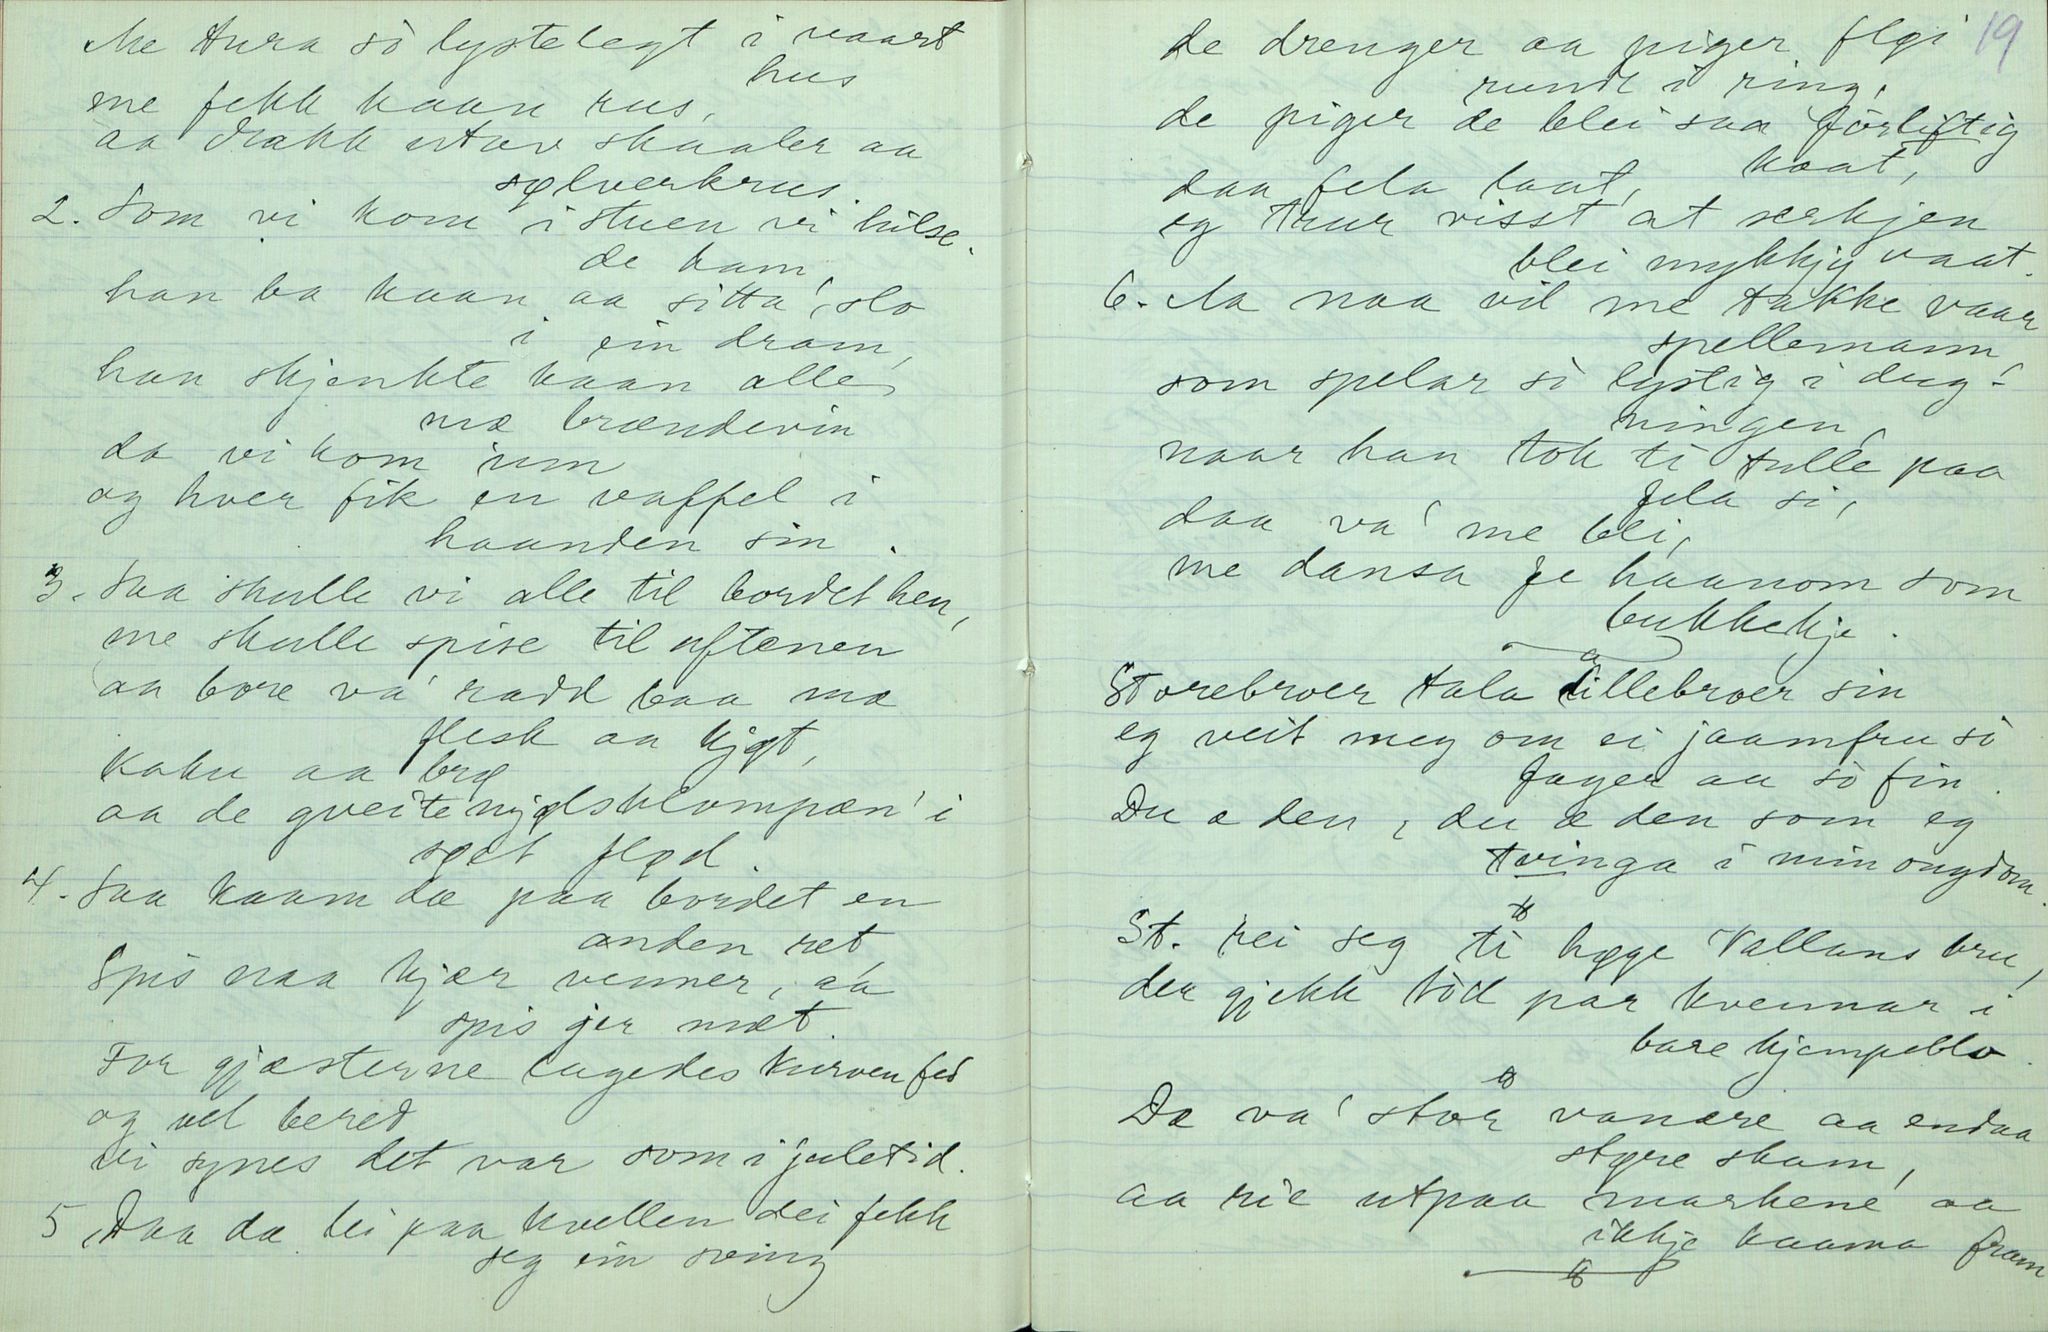 Me tura sò lystelegt i vaart
hus
me fekk kaan rus,
aa drakk utav skaaler aa
sølverkrus.
2. Som vi kom i stuen vi hilse-
de ham,
han ba kaan aa sitta', slo
i ein dram,
han skjenkte kaan alle
mæ brændevin
da vi kom inn
og hver fik en vaffel i
haanden sin.
3. Saa skulle vi alle til bordet hen,
me skulle spise til aftenen
aa bore va' radd baa mæ
flesk aa kjøt,
kaku aa brø
aa de gveitemjølsklompæn' i
søet flød.
4. Saa kaam dæ paa bordet en
anden ret,
Spis naa kjær venner, aa
spis jer mæt.
For gjæsterne lagedes kurven fed
og vel bered
vi synes det var som i juletid.
5 Daa dæ lei paa kvellen dei fekk
seg ein sving
19
de drenger aa piger fløi
rundt i ring,
de piger de blei saa förliftig
kaat,
daa fela laat,
eg trur visst at særkjen
blei mykkjy vaat.
6. Aa naa vil me takke vaar
spellemann,
som spelar sò lystig i dug-
ningen,
naar han tok ti tulle paa
fela si,
daa va' me bli,
me dansa fe haanom som
bukkekje.
Storebroer tala a lillebroer sin
eg veit meg om ei jaamfru sò
fager aa sò fin.
Du æ den, du æ den som eg
tvinga i min ongdom.
St. rei seg ti høge Vallans bru,
der gjekk tòd par kvennar i
bare kjempeblo.
Dæ va' stor vanære aa endaa
støre skam,
aa rie utpaa markene aa
ikkje kaama fram